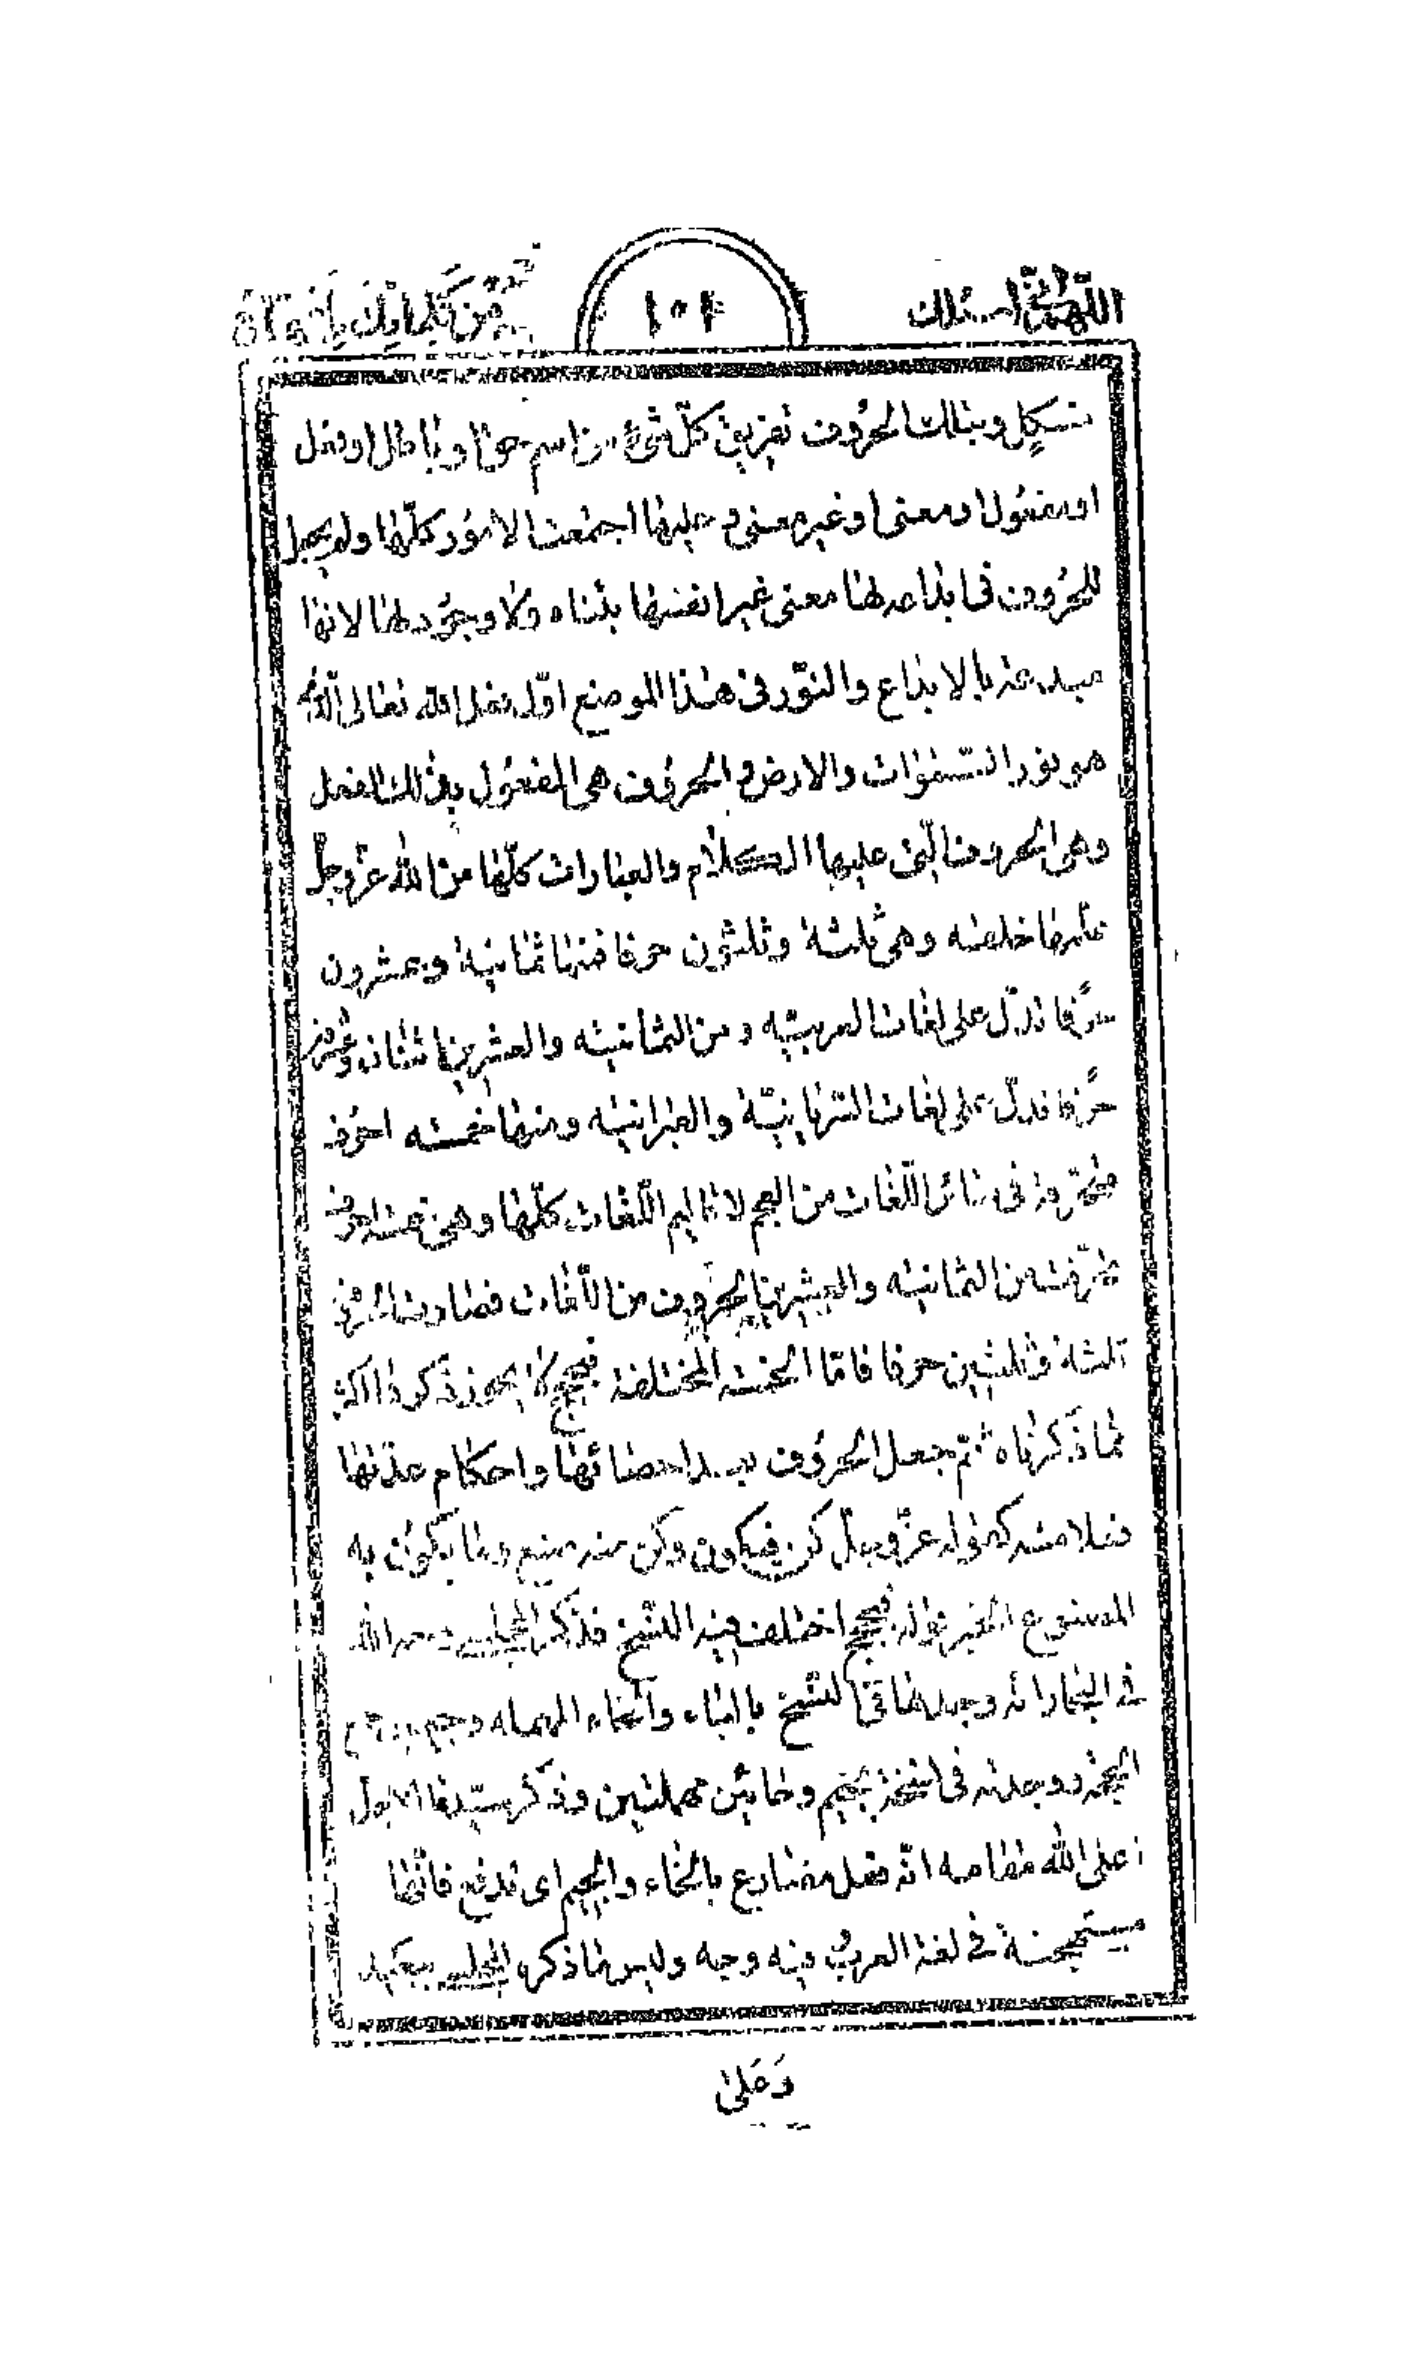 اللهم انی اسئلك
من كلماتك باتمها
١٥٤
مشكل وبتلك الحروف تفريق كل شیء من اسم حق او باطل او فعل
او مفعول او معنی او غير معنی و عليها اجتمعت الامور كلها ولم يجعل
للحروف فی ابداعه لها معنی غير انفسها بتناه ولا وجود لها لانها
مبدعة بالابداع والنور فی هذا الموضع اول فعل الله تعالی الذی
هو نور السموات والارض و الحروف هی المفعول بذلك الفعل
وهی الحروف التی عليها الكلام والعبارات كلها من الله عز وجل
علمها خلقه وهی ثلثة وثلثون حرفا فمنها ثمانية وعشرون
حرفا تدل علی لغات العربية ومن الثمانية والعشرين اثنان وعشرون
حرفا تدل علی لغات السريانية والعبرانية ومنها خمسة احرف
متحرفة فی سائر اللغات من العجم لاقاليم اللغات كلها وهی خمسة احرف
تحرفت من الثمانية والعشرين الحروف من اللغات فصارت الحروف
ثلثة وثلثين حرفا فاما الخمسة المختلفة فبحجج لا يجوز ذكرها اكثر
مما ذكرناه ثم جعل الحروف بعد احصائها واحكام عدتها
فعلا منه كقوله عز وجل كن فيكون وكن منه صنع وما يكون به
المصنوع الخبر قوله بحجج اختلف فيه النسخ فذكر المجلسی رحمه الله
فی البحار انه وجدها فی النسخ بالباء والحاء المهملة وجيم
الحجة ووجدته فی نسخة بجيم وحائين مهملتين وذكر سيدنا الاجل
اعلی الله مقامه انه فعل مضارع بالخاء والجيم ای تدفع فانها
مستهجنة فی لغة العرب وفيه وجه وليس ما ذكره المجلسی ببعيد
وعلی